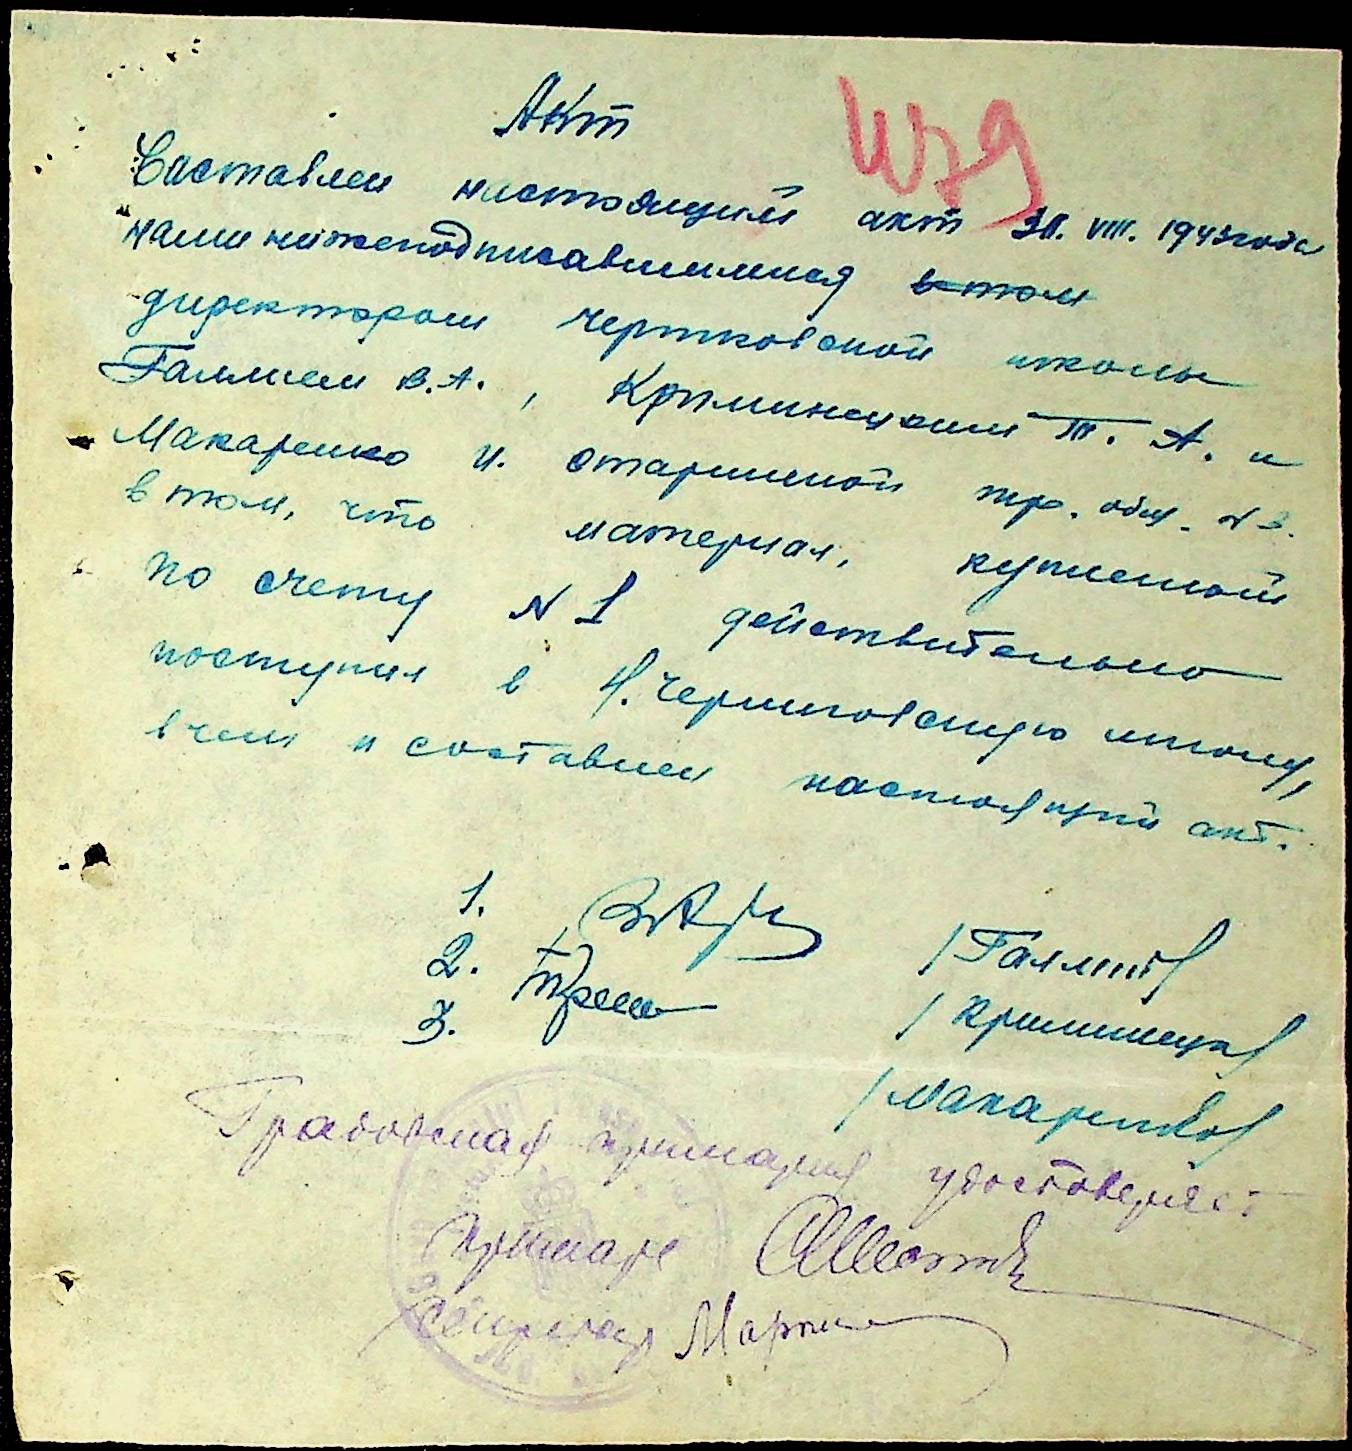 Акт
179
Составлен настоящий акт 30. VIII. 1943 года
нами нижеподписавшимися в том
директором Чертковской школы
Галлием В.А., Криминецким Т. А. и
Макаренко и старшиной тр. общ. N 3.
в том, что материал, купленный
по счету N 1 действительно
поступил в Н. Черниговскую школу,
в чем и составлен настоящий акт.
1. / Галлий /
2. / Криминецкий /
3. / Макаренко /
Градовская примария удостоверяет
Примаре
Секретар